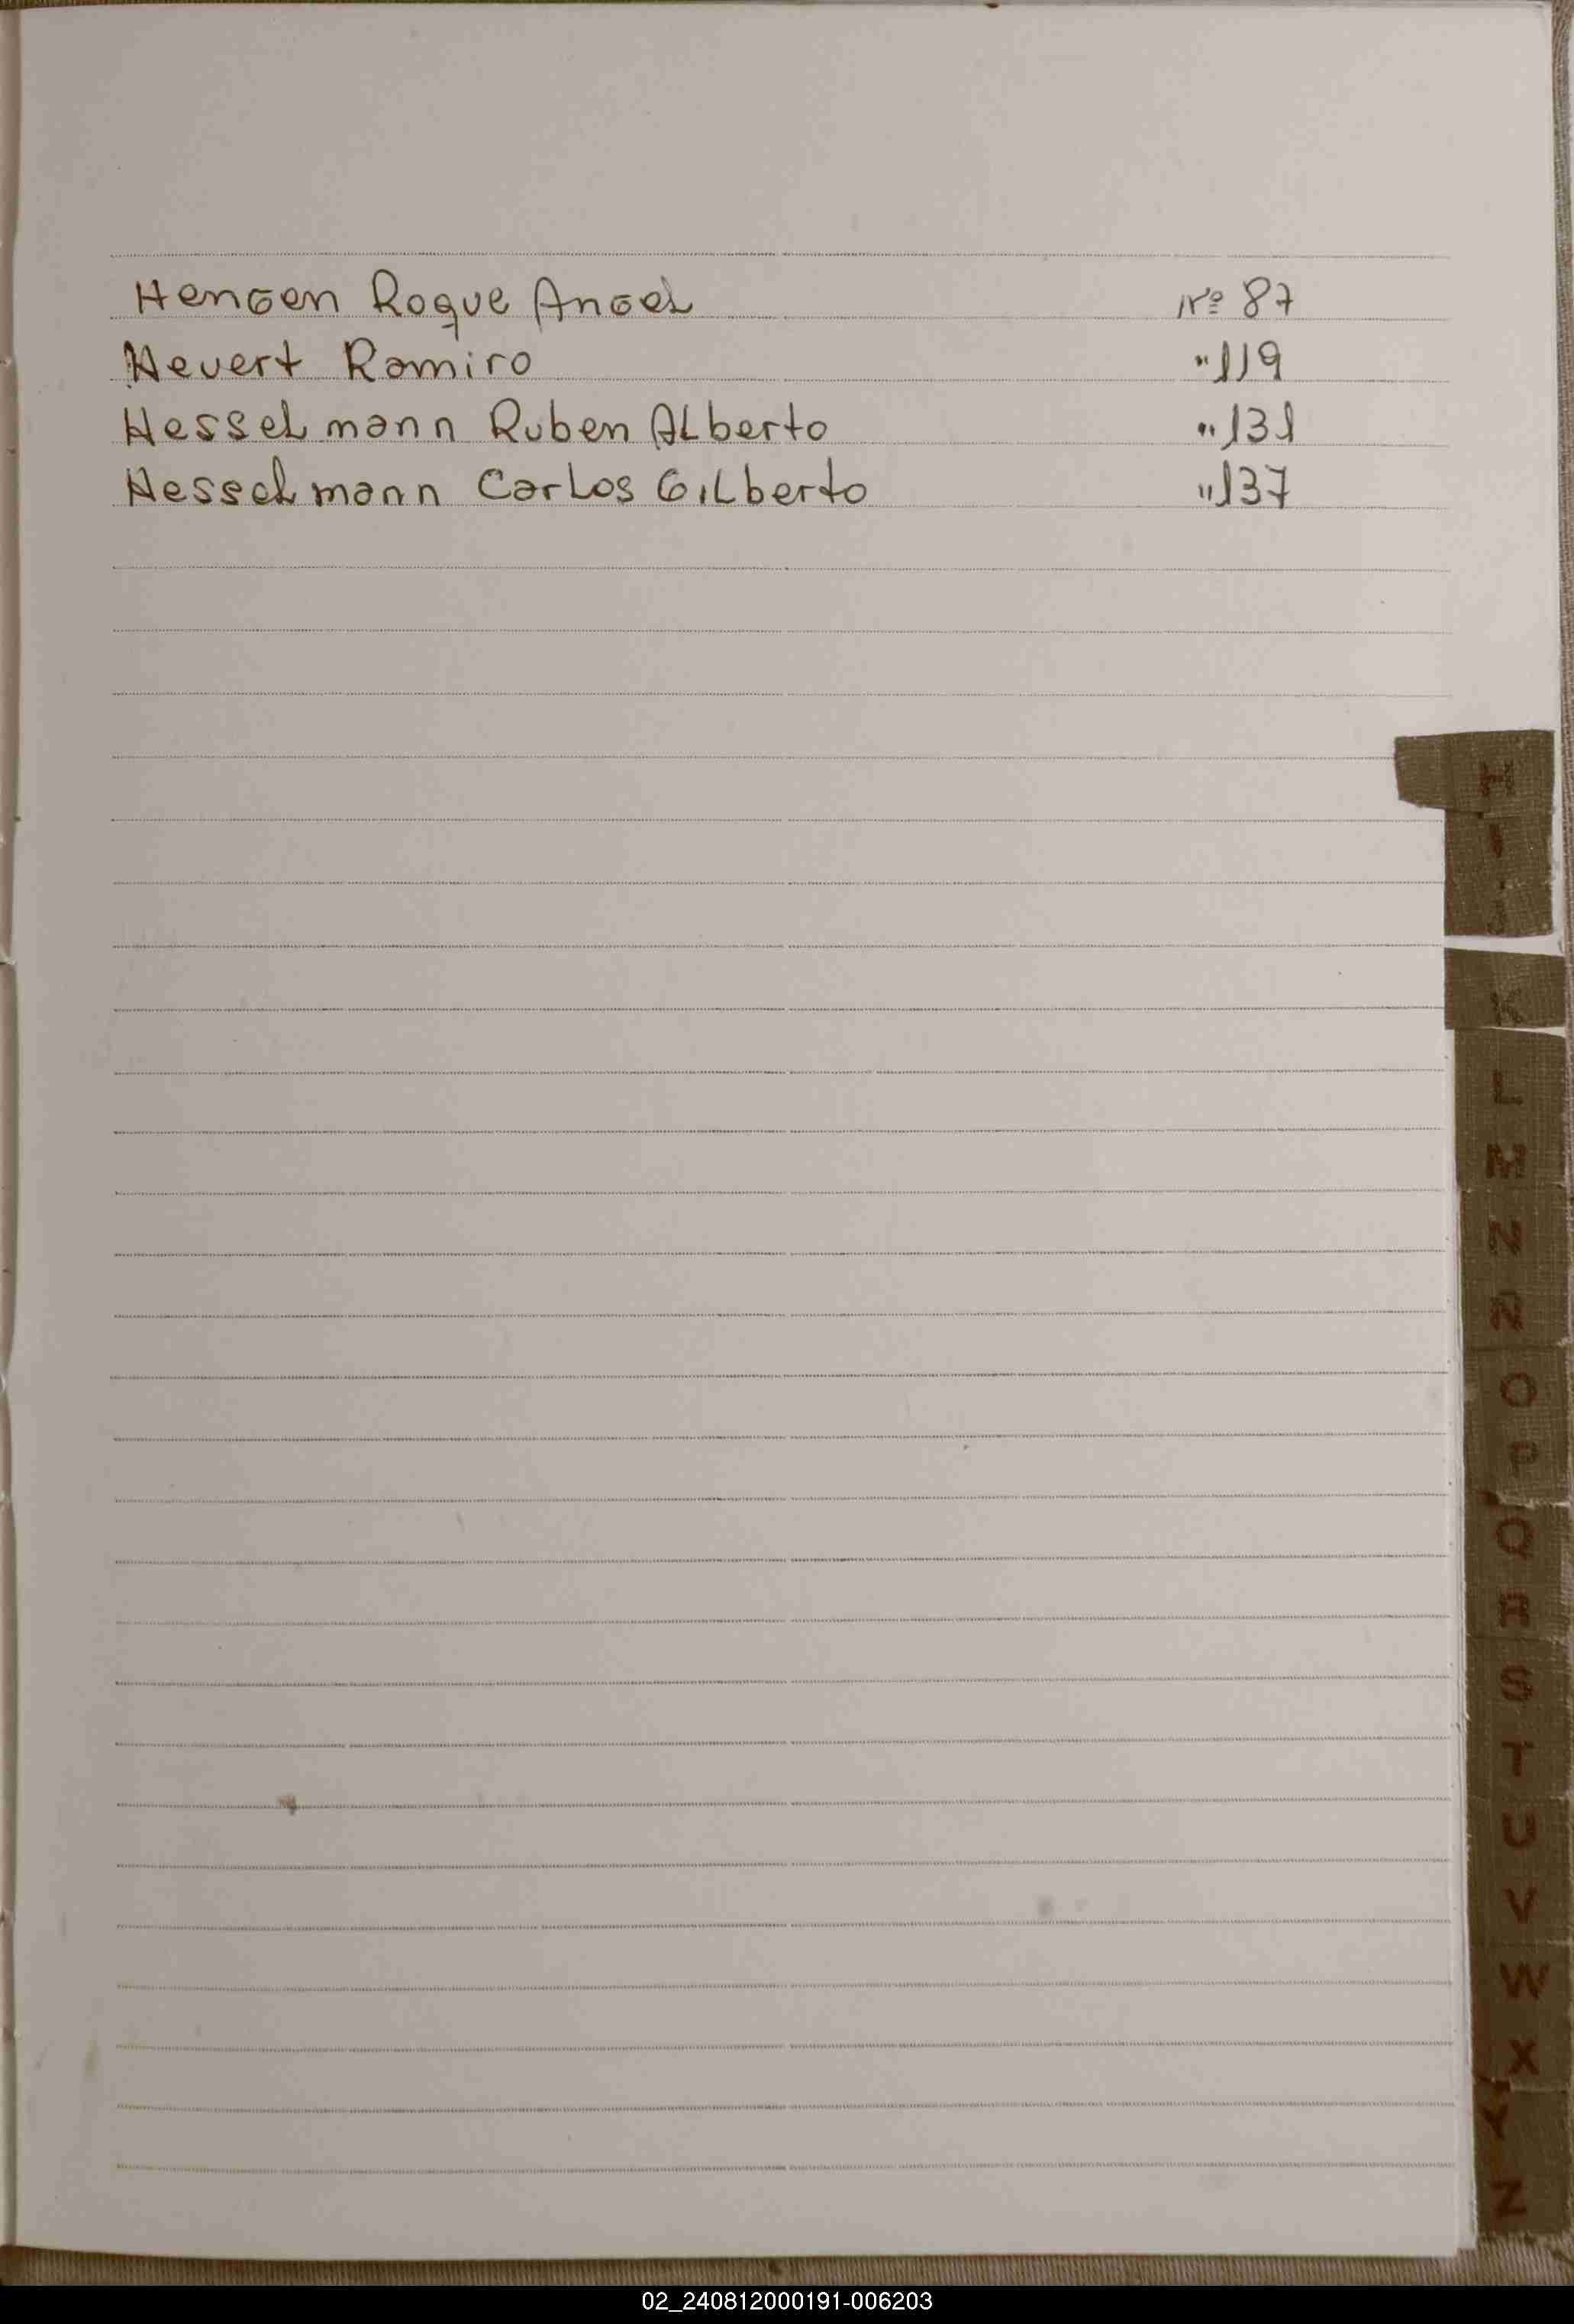 Hengen Roque Angel Nº 87
Hevert Ramiro " 119
Hesselmann Ruben Alberto " 131
Hesselmann Carlos Gilberto " 137
H
I
J
K
L
M
N
Ñ
O
P
Q
R
S
T
U
V
W
X
Y
Z
02_240812000191-006203